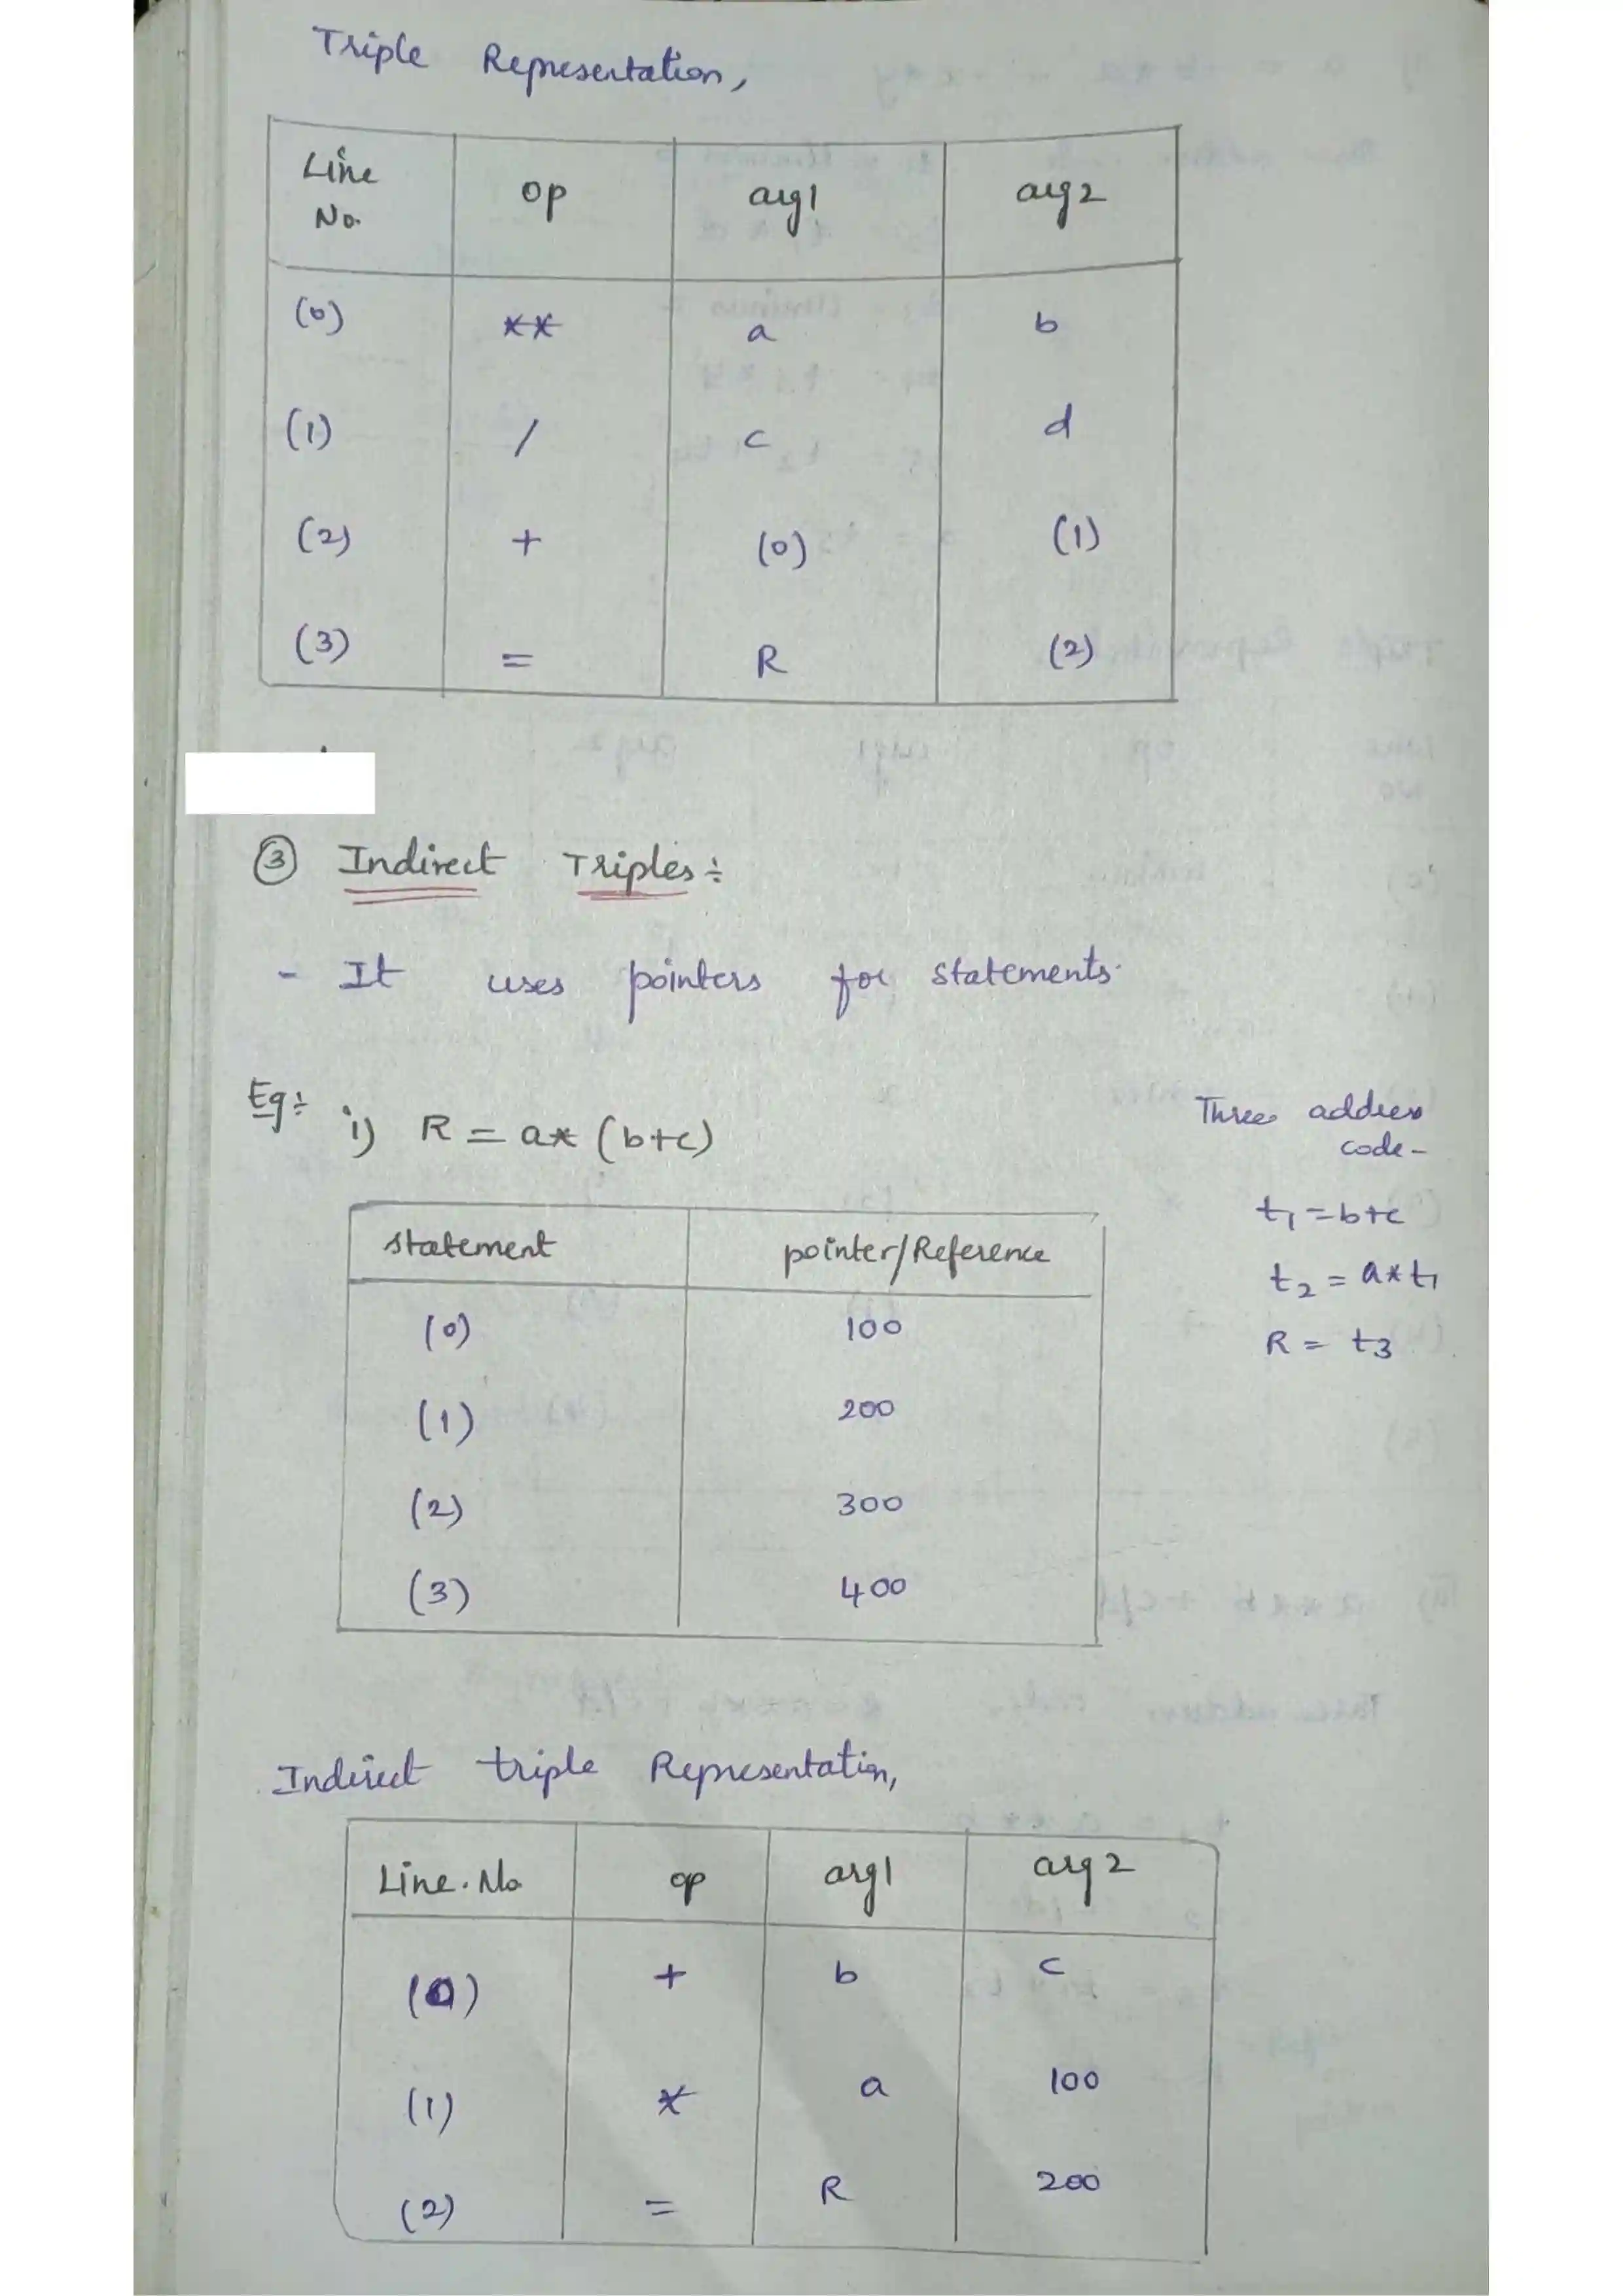 Triple Representation,
Line No. op arg1 arg2
(0) ** a b
(1) / c d
(2) + (0) (1)
(3) = R (2)
③ Indirect Triples ÷
- It uses pointers for statements.
Eg ÷ i) R = a* (b+c)
Three address
code -
t1 = b+c
t2 = a*t1
R = t3
statement pointer/Reference
(0) 100
(1) 200
(2) 300
(3) 400
Indirect triple Representation,
Line. No op arg1 arg2
(0) + b c
(1) * a 100
(2) = R 200